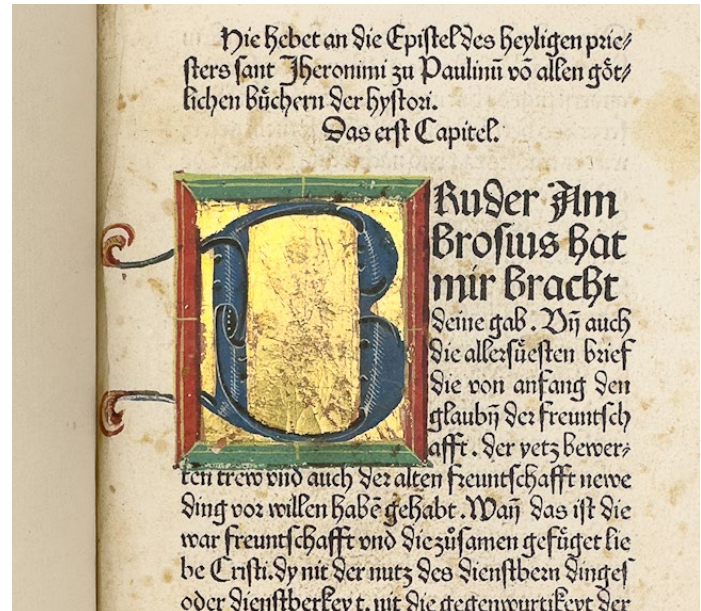 Hie hebet an die Epistel des heyligen prie⸗
sters sant Jheronimi zu Paulinū vō allen göt⸗
lichen büchern der hystori.
Das erst Capitel.
BRuder Am
brosius hat
mir bracht
deine gab. Vn̄ auch
die allersüesten brief
die von anfang den
glaubn̄ der freuntsch
afft. der yetz bewer⸗
ten trew vnd auch der alten freuntschafft newe
ding vor willen habē gehabt. Wan̄ das ist die
war freuntschafft vnd die zůsamen gefüget lie
be Cristi. dy nit der nutz des dienstbern dinges
oder dienstberkeyt. nit die gegenwurtikeyt der